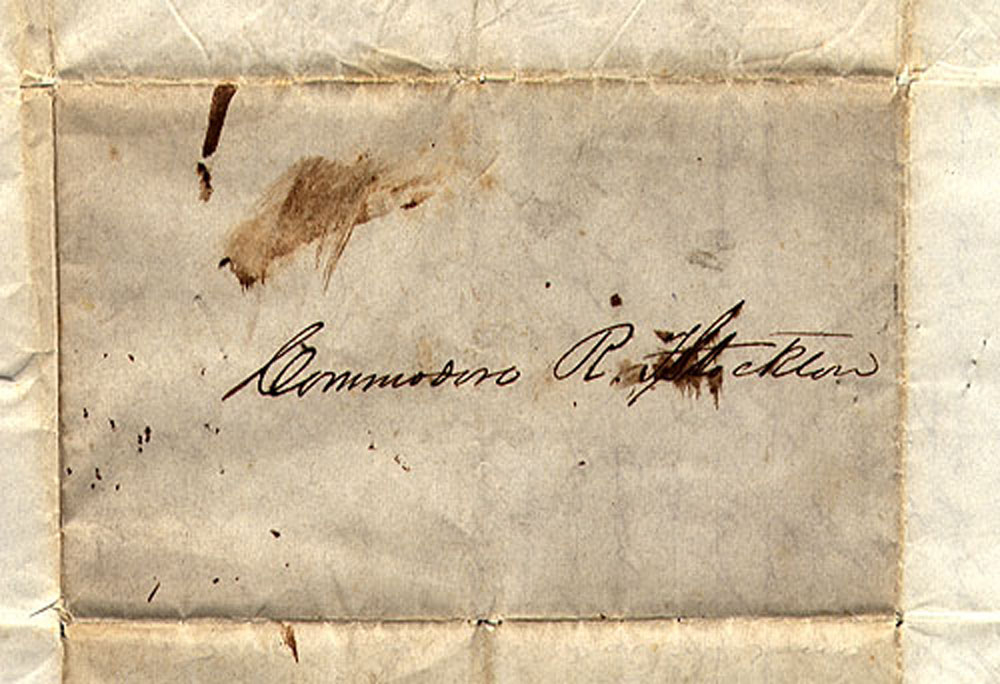 Commodore R. F. Stockton